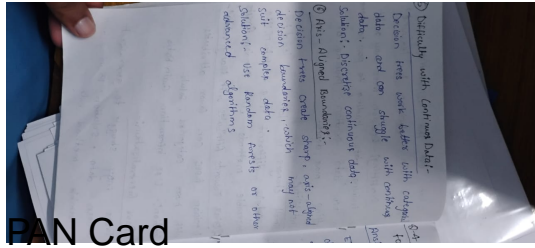 ⑤ Difficulty with Continues Data:-
Decision trees work better with categori
data and can struggle with continues
data.
Solution:- Discretise continuous data.
⑥ Axis-Aligned Boundaries:-
Decision trees create sharp, axis-aligned
decision boundaries, which may not
suit complex data.
Solution:- Use Random Forests or other
advanced algorithms
PAN Card